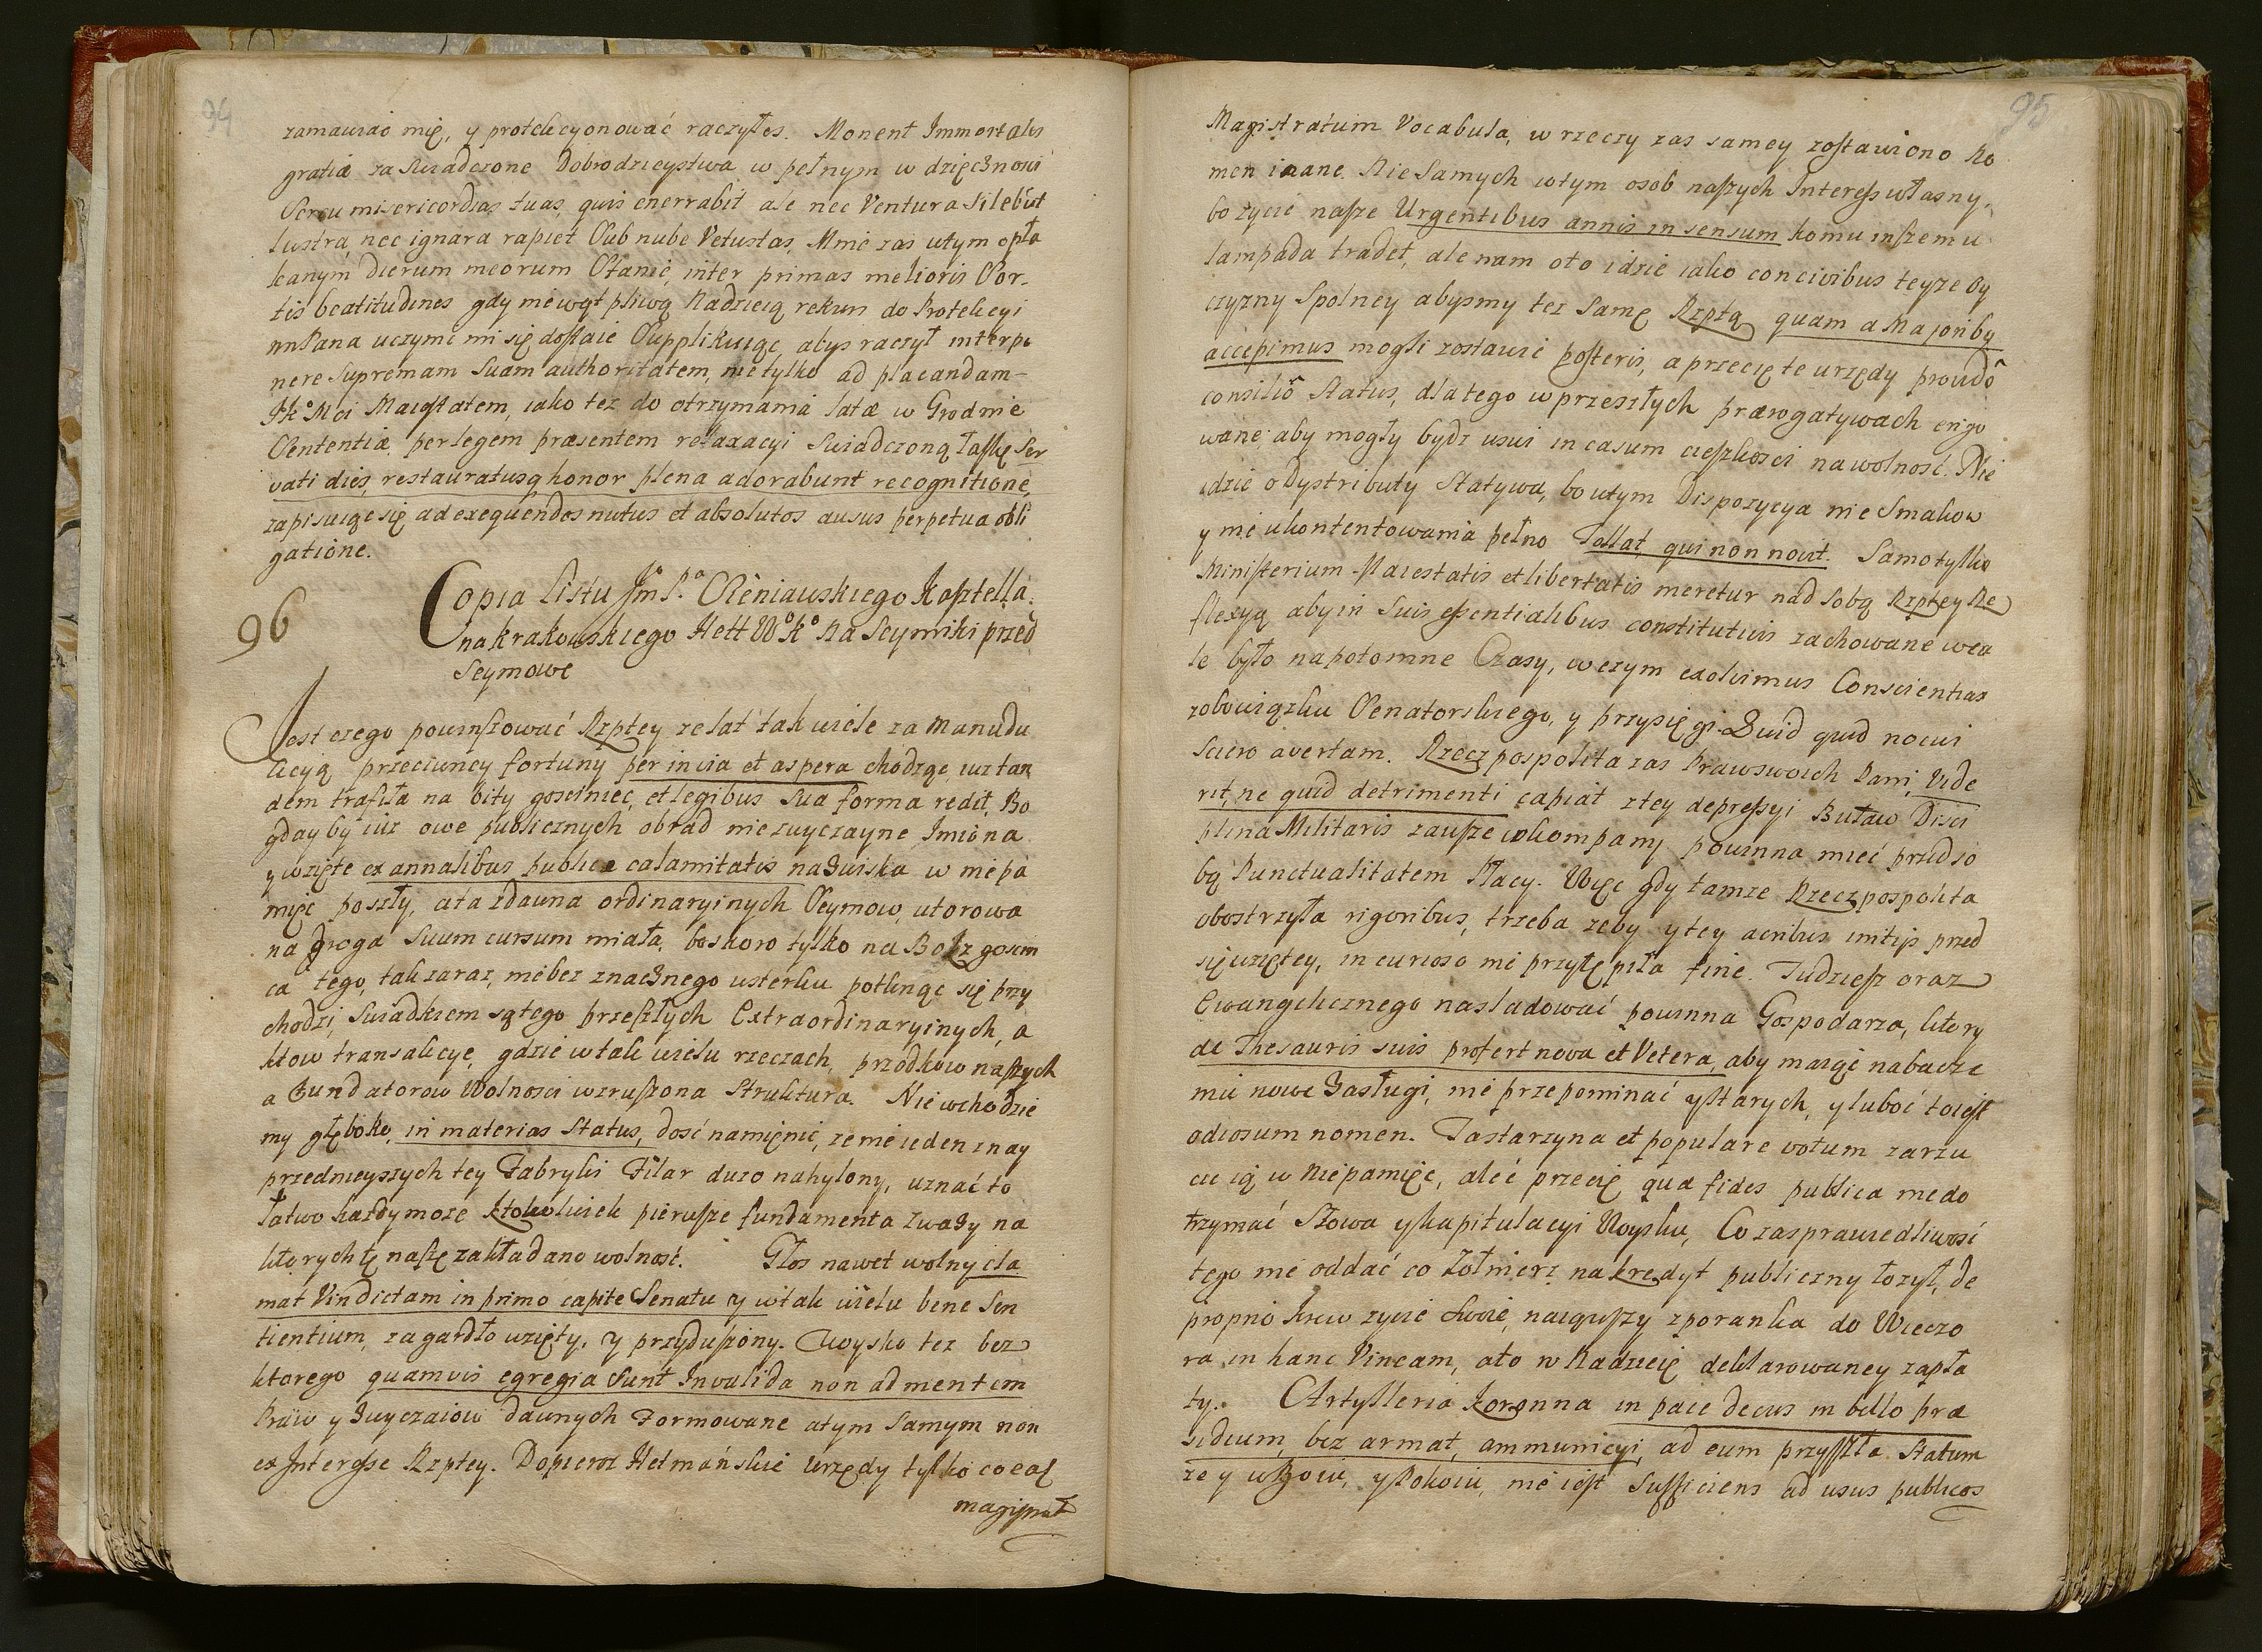 94
zamawiac mię, y protekcyonować raczyłes. Monent Immortales
gratiæ za swiadczone Dobrodzieystwa w pełnym wdzięcznosci
Sercu misericordias tuas, quis enerrabit ale nec Ventura silebūt
lustra, nec ignara rapiet Sub nube Vetustas, Mnie zas w tym opła
kanym dierum meorum Stanie, inter primas melioris Sor-
tis beatitudines gdy niewątpliwą Nadzieią rekurs do Protekcyi
WnPana uczynić mi się dostaie Supplikuiąc abys raczył interpo
nere Supremam Suam authoritatem, nie tylko ad placandam-
JKo Mci Maiestatem, iako tez do otrzymania latæ w Grodnie
Sententiæ, per legem præsentem relaxacyi Swiadczoną łaskę Ser
vati dies, restauratusq honor plena adorabunt recognitione,
zapisuiąc się ad exequendos nutus et absolutos ausus perpetua obli
gatione.
96
Copia Listu Jm Pa Sieniawskiego Kasztella
na Krakowskiego Hett Wo Ko Na Seymiki przed
Seymowe
Jest czego powinszować Rzptey ze lat tak wiele za manudu
kcyą przeciwney fortuny per invia et aspera chodząc, iuz tan
dem trafiła na bity gosciniec, et legibus sua forma redit, Bo
gdayby iuz owe publicznych obrad niezwyczayne Imiona
y wzięte ex annalibus publicæ calamitatis nazwiska w niepa
mięć poszły, a ta zdawna ordinaryinych Seymow, utorowa
na droga Suum cursum miała, bo skoro tylko na Bok z goscin
ca tego, tak zaraz, nie bez znacznego usterku potknąc się przy
chodzi, Swiadkiem są tego przeszłych Extraordinaryinych, a
ktow transakcye, gdzie w tak wielu rzeczach, przodkow naszych
a Fundatorow Wolnosci wzruszona Struktura. Nie wchodzie
my głęboko, in materias Status, dosć namienić, ze nie ieden z nay
przednieyszych tey Fabryki Filar duzo nahylony, uznać to
łatwo kazdy moze ktokolwiek pierwsze fundamenta zwazy na
ktorych tę naszę zakładano wolnosć. Głos nawet wolny cla
mat Vindictam in primo capite Senatu y w tak wielu bene Sen
tientium, za gardło wzięty, y przyduszony. Woysko tez bez
ktorego quamvis egregia sunt Invalida non ad mentem
Praw y Zwyczaiow dawnych Formowane a tym samym non
ex Interesse Rzptey. Dopieroz Hetmańskie Urzędy tylko co eaq
magistrat
95
Magistratum Vocabula, w rzeczy zas samey zostawiono No
men inane. Nie Samych w tym osob naszych Interess własny,
bo zycie nasze Urgentibus annis in sensum komu inszemu
lampada tradet, ale nam oto idzie iako concivibus teyze Oy
czyzny Spolney abysmy tez Samę Rzptą quam a Majoribq
accepimus mogli zostawić posteris, a przecię te urzędy provido
consilio Status, dla tego w przeszłych prærogatywach erigo
wane, aby mogły bydz usui in casum cieszkosci na wolnosć. Nie
idzie o Dystributy Statywa, bo w tym Dispozycya nie Smakow
y nie ukontentowania pełno Tollat, qui non novit. Samo tylko
Ministerium Maiestatis et libertatis meretur nad sobą Rzptey Re
flexyą aby in Suis essentialibus constitutivis zachowane wca
le było na potomne Czasy, w czym exolvimus Conscientias
z obowiązku Senatorskiego, y przysięgi. Quid quid nocui
Sciero avertam. Rzeczpospolita zas Praw swoich Pani, Vide
rit, ne quid detrimenti capiat z tey depressyi Buław Disci
plina Militaris zawsze w kompany powinna mieć przed so
bą Punctualitatem Płacy. Więc gdy tamze Rzeczpospolita
obostrzyła rigoribus, trzeba zeby y tey acribus initijs przed
się wziętey, in curioso nie przytępiła fine. Tudziesz oraz
Ewangelicznego nasladować powinna Gospodarza, ktory
de Thesauris suis profert nova et Vetera, aby maiąc na bacze
niu nowe Zasługi, nie przepominać y starych, y luboć to iest
odiosum nomen. Ta starzyna et populare votum zarzu
cić ią w Niepamięć, aleć przecię qua fides publica niedo
trzymać Słowa y kapitulacyi Woysku, Co za sprawiedliwosć
tego nie oddać co Zołnierz na kredyt publiczny łozył, de
proprio krew zycie swoie, naiąwszy z poranka do Wieczo
ra in hanc Vineam, ato w Nadzieię deklarowaney zapła
ty. Artylleria Koronna in pace decus in bello præ
sidium, bez armat, ammunicyi, ad eum przyszła Statum
ze y w Boiu, y Pokoiu, nie iest Sufficiens ad usus publicos